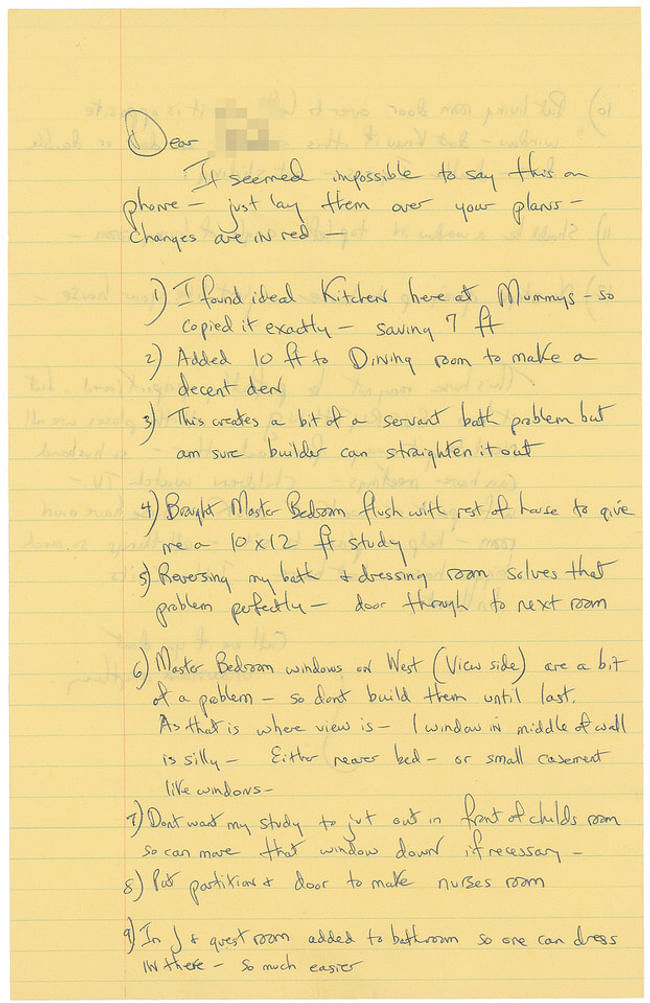 Dear
It seemed impossible to say this on
phone – just lay them over your plans –
Changes are in red –
1) I found ideal Kitchen here at Mummys – so
copied it exactly – saving 7 ft
2) Added 10 ft to Dining room to make a
decent den
3) This creates a bit of a servant bath problem but
am sure builder can straighten it out
4) Brought Master Bedroom flush with rest of house to give
me a 10 x 12 ft study
5) Reversing my bath & dressing room solves that
problem perfectly – door through to next room
6) Master Bedroom windows on West (View side) are a bit
of a problem – so dont build them until last.
As that is where view is – 1 window in middle of wall
is silly – Either nearer bed – or small casement
like windows –
7) Dont want my study to jut out in front of childs room
so can move that window down if necessary –
8) Put partition & door to make nurses room
9) In J & guest room added to bathroom so one can dress
in there – so much easier